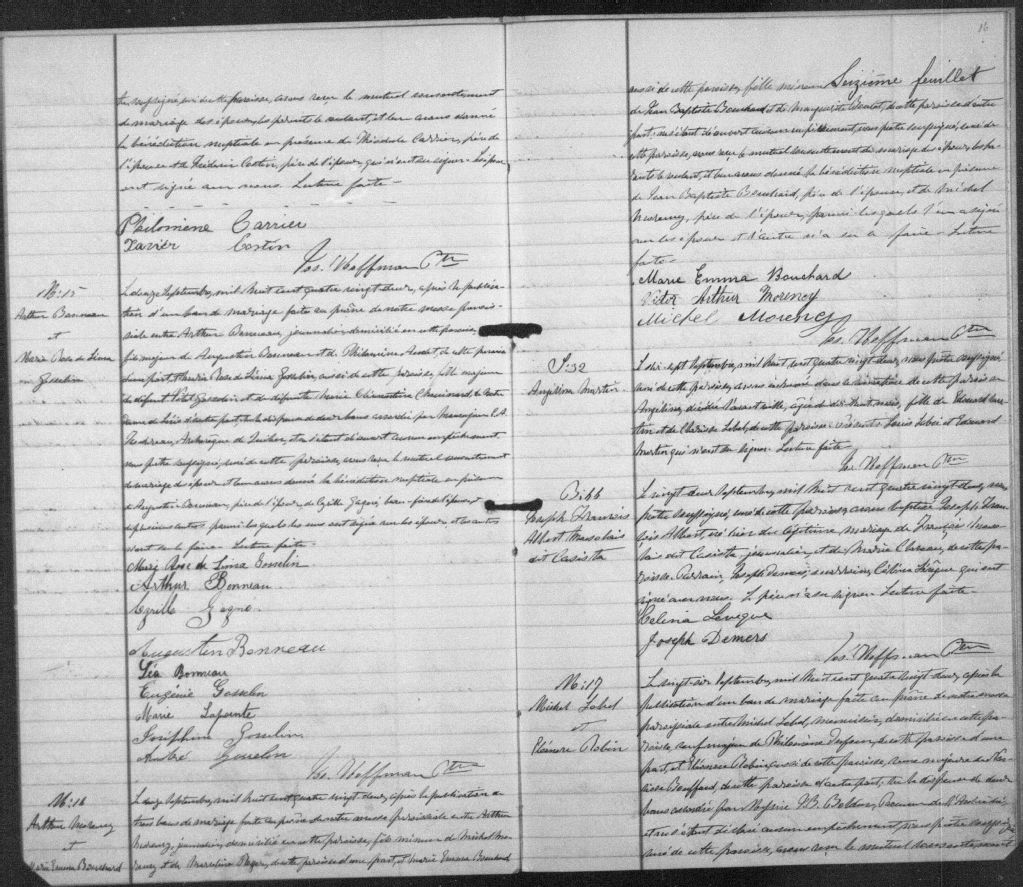 soussigné, curé de cette paroisse, avons reçu le mutuel consentement
de mariage des époux, les parents le voulant, et leur avons donné
la bénédiction nuptiale en présence de Théodule Carrier, père de
l'épouse et de Costin, père de l'époux, qui n'ont su signer. Les époux
ont signé avec nous. Lecture faite.
Philomène Carrier
Xavier Costin
Jos. Hoffman Ptre
M:15
Arthur Bonneau
et
Marie Rose de Lima
Gosselin
Le onze Septembre, mil huit cent quatre vingt deux, après la publica-
tion d'un ban de mariage faite au prône de notre messe parois-
siale entre Arthur Bonneau, journalier, domicilié en cette paroisse,
fils majeur de Augustin Bonneau et de Philomène de cette paroisse
d'une part, et Marie Rose de Lima Gosselin, aussi de cette paroisse, fille majeure
de défunt Gosselin et de défunte Marie Clementine de Notre
Dame de d'autre part, vu la dispense de deux bans accordée par Monseigneur E. A.
Taschereau, Archevêque de Québec, et ne s'étant découvert aucun empêchement,
nous prêtre soussigné, curé de cette paroisse, avons reçu le mutuel consentement
de mariage des époux et leur avons donné la bénédiction nuptiale en présence
de Augustin Bonneau, père de l'époux, de Cyrille Gagné, beau-frère de l'épouse, et
de plusieurs autres parmi lesquels les uns ont signé avec les époux et les autres
n'ont su le faire. Lecture faite.
Marie Rose de Lima Gosselin
Arthur Bonneau
Cyrille Gagné
Augustin Bonneau
Léa Bonneau
Eugénie Gosselin
Marie Lapointe
Joséphine Gosselin
André Gosselin
Jos. Hoffman Ptre
M:16
Arthur Morency
et
Marie Emma Bouchard
Le onze Septembre, mil huit cent quatre vingt deux, après la publication de
trois bans de mariage faite au prône de notre messe paroissiale entre Arthur
Morency, journalier, domicilié en cette paroisse, fils mineur de Michel Mo-
rency et de Marceline de cette paroisse d'une part, et Marie Emma Bouchard
16
aussi de cette paroisse, fille mineure Suzième feuillet
de Jean Baptiste Bouchard et de Marguerite de cette paroisse d'autre
part; ne s'étant découvert aucun empêchement, nous prêtre soussigné, curé de
cette paroisse, avons reçu le mutuel consentement de mariage des époux, les pa-
rents le voulant, et leur avons donné la bénédiction nuptiale en présence
de Jean Baptiste Bouchard, père de l'épouse, et de Michel
Morency, père de l'époux, parmi lesquels l'un a signé
avec les époux et l'autre n'a su le faire. Lecture
faite.
Marie Emma Bouchard
Victor Arthur Morency
Michel Morency
Jos. Hoffman Ptre
S:32
Angélina Martin
Le dix-sept Septembre, mil huit cent quatre vingt deux, nous prêtre soussigné,
curé de cette paroisse, avons inhumé dans le cimetière de cette paroisse
Angélina, décédée l'avant veille, âgée de dix-huit mois, fille de Edouard Mar-
tin et de Clarisse Lebel, de cette paroisse. Présents Louis et Edouard
Martin qui n'ont su signer. Lecture faite.
Jos. Hoffman Ptre
B:66
Joseph François
Albert
dit
Le vingt deux Septembre, mil huit cent quatre vingt deux, nous
prêtre soussigné, curé de cette paroisse, avons baptisé Joseph Fran-
çois Albert, né hier du légitime mariage de François
dit journalier, et de Marie de cette pa-
roisse. Parrain, Joseph Demers, marraine, Célina Lévêque qui ont
signé avec nous. Le père n'a su signer. Lecture faite.
Celina Leveque
Joseph Demers
Jos. Hoffman Ptre
M:17
Michel Lebel
et
Eléonore Robin
Le vingt-six Septembre, mil huit cent quatre vingt deux, après la
publication d'un ban de mariage faite au prône de notre messe
paroissiale entre Michel Lebel, menuisier, domicilié en cette pa-
roisse, veuf majeur de Philomène de cette paroisse d'une
part, et Eléonore Robin, aussi de cette paroisse, veuve majeure de
de cette paroisse d'autre part, vu la dispense de deux
bans accordée par
et ne s'étant découvert aucun empêchement, nous prêtre soussigné,
curé de cette paroisse, avons reçu le mutuel consentement